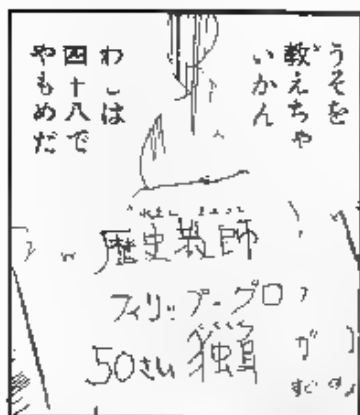 うそを
教えちゃ
いかん
わしは
四十八で
やもめだ
歴史教師
フィリップ・グロ
50さい 独身